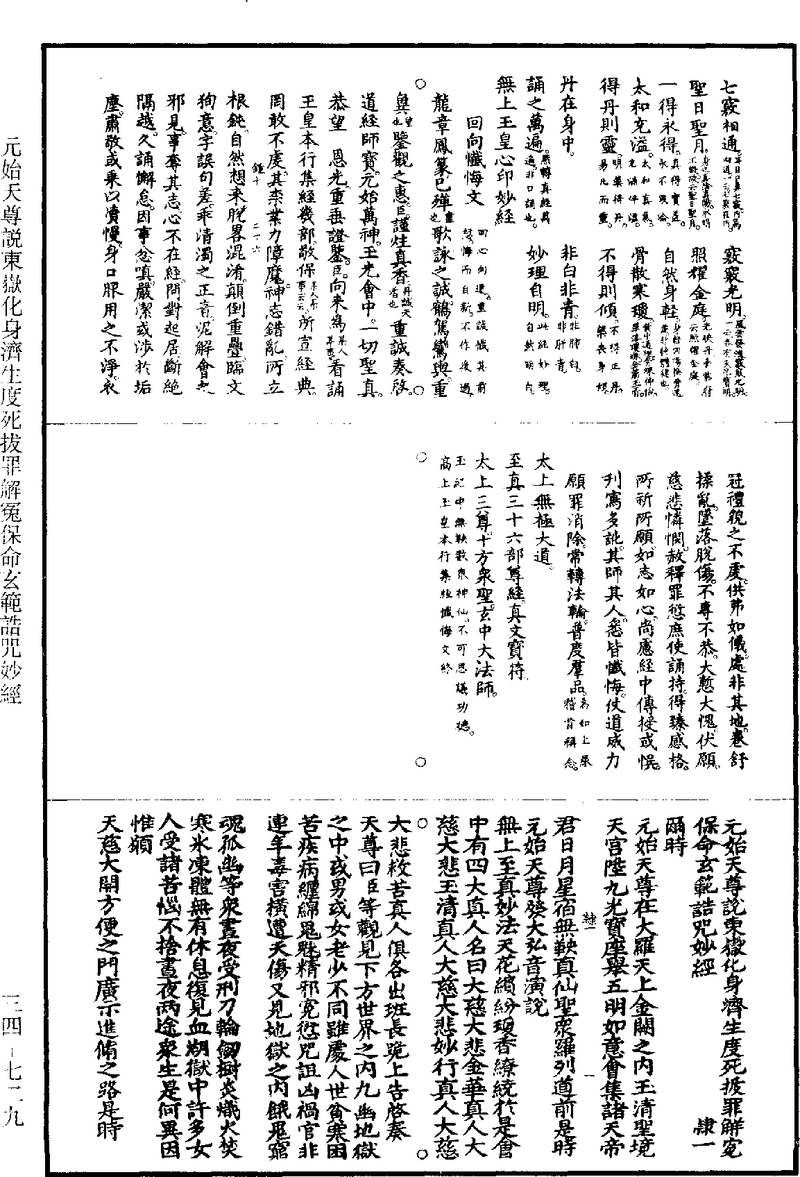 七竅相通
竅竅光明
聖日聖月
照耀金庭
一得永得
自然身輕
太和充溢
骨散寒瓊
得丹則靈
不得則傾
丹在身中
非白非青
誦之萬遍
妙理自明
無上玉皇心印妙經
回向懺悔文
龍章鳳篆已殫歌詠之誠鶴駕鸞輿重
鑒觀之惠臣謹炷真香重誠奏啓
道經師寶元始萬神玉光會中一切聖真
恭望 恩光重垂證鑒臣向來為看誦
玉皇本行集經幾部敬保所宣經典
罔敢不虔其柰業力障魔神志錯亂所立
鍾十 二十六
根鈍自然想來脫畧混淆顛倒重疊臨文
狥意字誤句差乖清濁之正音泥解會之
邪見事奪其志心不在經問對起居斷絶
隔越久誦懈怠因事忿嗔嚴潔或涉於垢
塵肅敬或乘以憒慢身口服用之不淨衣
冠禮貌之不虔供養如儀處非其地卷舒
揉亂墜落脫傷不專不恭大愆大愧伏願
慈悲憐憫赦釋罪愆庶使誦持得臻感格
所祈所願如志如心尚慮經中傳授或悞
刋寫多訛其師其人悉皆懺悔仗道威力
願罪消除常轉法輪普度羣品為如上緣稽首稱念
太上無極大道
至真三十六部尊經真文寶符
太上三尊十方衆聖玄中大法師
玉記中無鞅數衆神仙不可思議功德
高上玉皇本行集經懺悔文終
元始天尊說東嶽化身濟生度死拔罪解冤
保命玄範誥咒妙經 隷一
爾時
元始天尊在大羅天上金闕之內玉清聖境
天宮陞九光寶座舉五明如意會集諸天帝
隷一 一
君日月星宿無鞅真仙聖衆羅列道前是時
元始天尊發大弘音演說
無上至真妙法天花繽紛瓊香繚繞於是會
中有四大真人名曰大慈大悲金華真人大
慈大悲玉清真人大慈大悲妙行真人大慈
大悲救苦真人俱各出班長跪上告啓奏
天尊曰臣等觀見下方世界之內九幽地獄
之中或男或女老少不同雖處人世貧寒困
苦疾病纏綿鬼魅精邪冤愆咒詛凶禍官非
連年毒害橫遭夭傷又見地獄之內餓鬼窮
魂孤幽等衆晝夜受刑刀輪劒樹炎熾火焚
寒氷凍體無有休息復見血湖獄中許多女
人受諸苦惱不捨晝夜兩途衆生是何異因
惟願
天慈大開方便之門廣示進脩之路是時
元始天尊說東嶽化身濟生度死拔罪解冤保命玄範誥咒妙經
三四－七二九